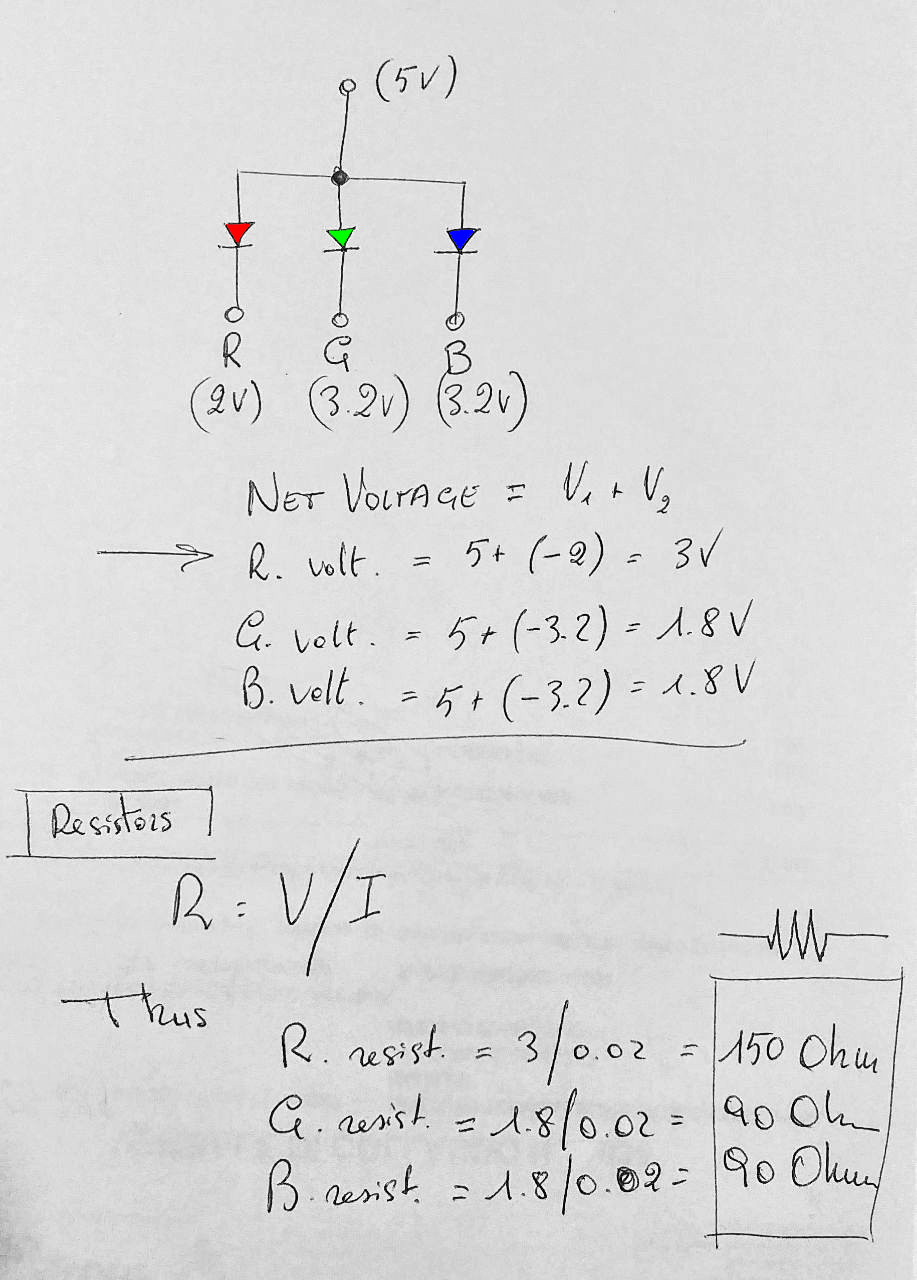 (5V)
R G B
(2V) (3.2V) (3.2V)
NET VOLTAGE = V₁ + V₂
R. volt. = 5+ (-2) = 3V
G. volt. = 5+ (-3.2) = 1.8 V
B. volt. = 5+ (-3.2) = 1.8 V
Resistors
R = V/I
Thus
R. resist. = 3/0.02 = 150 Ohm
G. resist. = 1.8/0.02 = 90 Ohm
B. resist. = 1.8/0.02 = 90 Ohm